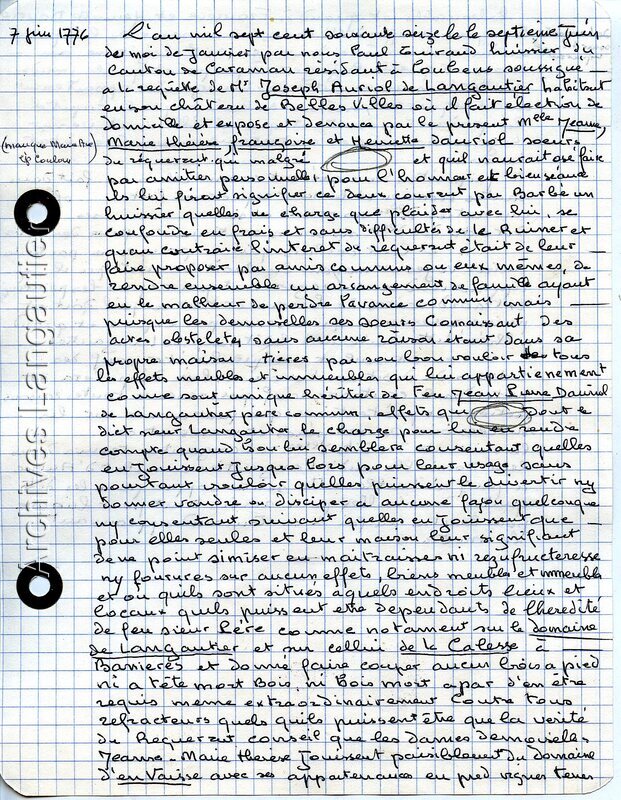 7 juin 1776
L'an mil sept cent soixante seize le septieme juin
de moi de janvier par nous Paul huissier du
Canton de Caraman résidant à Loubens soussigné
a la requête de Mr Joseph Auriol de Langautier habitant
en son château de Belles Villes où il fait élection de
domicile et expose et denonce par le present Melle Jeanne,
Marie thérèse françoise et Henriette dauriol soeurs
du réquerant qui malgré et quil n'aurait osé faire
par amitier personnelle, pour l'honneur et bienseance
ils lui firent signifier ce deux courant par Barbé un
huissier quelles se charge que plaider avec lui, se
confondre en frais et sans difficultés de le Ruiner et
quau contraire l'interet du requerant était de leur
faire proposer par amis communs ou eux mêmes, de
rendre ensemble un arrangement de famille ayant
eu le malheur de perdre commun mais
puisque les demoiselles ses soeurs Connaissant des
actes obstoletes sans aucune raison étant dans sa
propre maison par son bon vouloir de tous
les effets meubles et immeubles qui lui appartiennement
comme sont unique héritier de Feu Jean Pierre Dauriol
de Langautier père commun, effets que dont le
dict sieur Langautier le charge pour lui en rendre
compte quand bon lui semblera consentant quelles
en Jouissent Jusqua lors pour leur usage sans
pourtant vouloir quelles puissent le divertir ny
donner vandre ou disciper a aucune façon quelconque
ny consentant suivant quelles en Jouissent que
pour elles seules et leur maison leur signifiant
de ne point simiser en maitraisses ni
ny sur aucun effets, biens meubles et immeubles
et où quils sont situés àquels endroits lieux et
locaux quels puissent etre dependants de lheredité
de feu sieur Père comme notament sur le domaine
de Langautier et sur cellui de la Calesse à
Barrieres et faire couper aucun bois a pied
ni a tête mort Bois, ni Bois mort apar d'en être
requis meme extraordinairement Contre tous
refracteurs quels quils puissent être que la verité
du Requerant conseil que les dames demoiselles
Jeanne - Marie therese Jouissent paisiblement du domaine
d'en Vaisse avec ses appartenances en pred vignes terres
(manque Marie
Coulou)
Archives Langautier